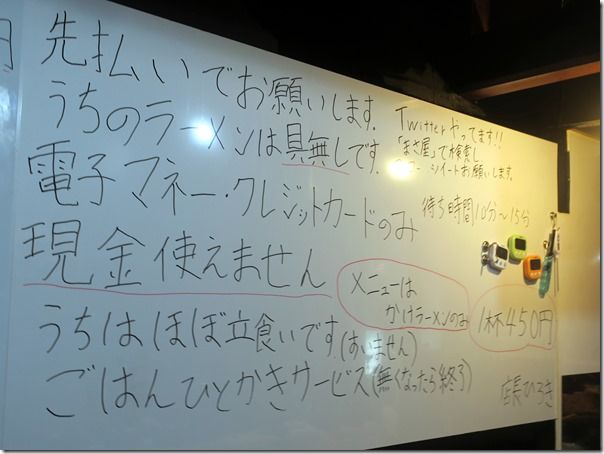 円
先払いでお願いします.
うちのラーメンは具無しです.
電子マネー・クレジットカードのみ
現金使えません
うちはほぼ立食いです(すいません)
ごはんひとかきサービス(無くなったら終了)
Twitterやってます!!
「まさ屋」で検索し
ツイートお願いします.
待ち時間10分〜15分
メニューは
かけラーメンのみ
1杯450円
店長ひろき